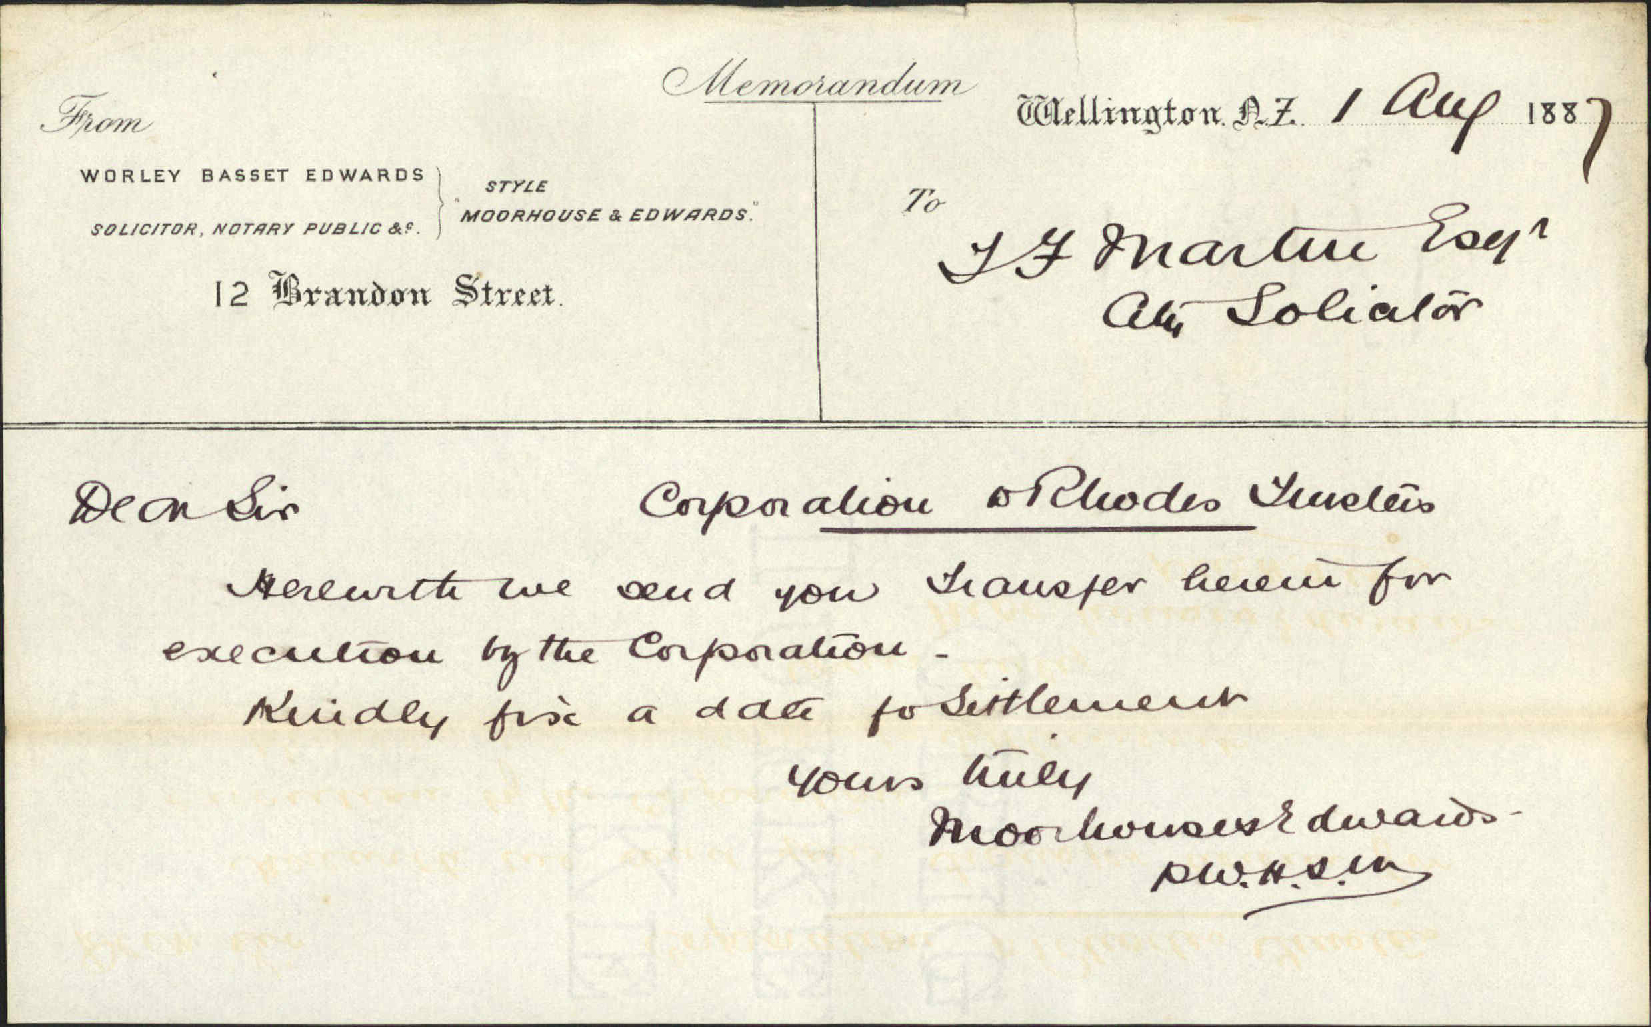 Memorandum
From
Wellington. N.Z. 1 Aug 1887
WORLEY BASSET EDWARDS
SOLICITOR, NOTARY PUBLIC &c.
STYLE
"MOORHOUSE & EDWARDS."
12 Brandon Street.
To
T F Martin Esqr
City Solicitor
Dear Sir
Corporation & Rhodes Trustees
Herewith we send you Transfer herein for
execution by the Corporation -
Kindly fix a date fo Settlement
Yours truly
Moorhouse & Edwards -